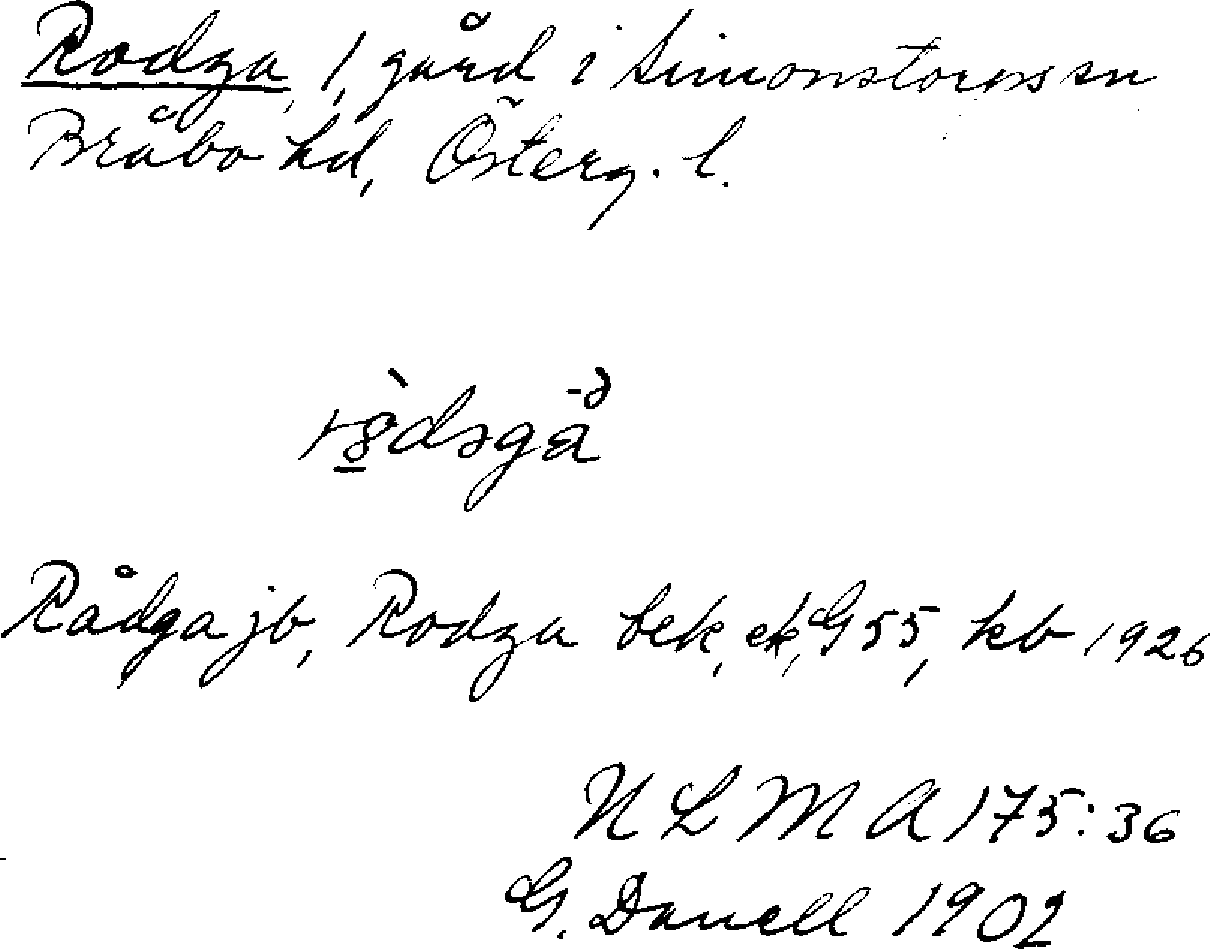 Rodga, 1, gård i Simonstorps sn
Bråbo hd, Österg. l.
Rådga jb, Rodga bek, ek, G55, kb 1926
ULMA 175:36
G. Danell 1902